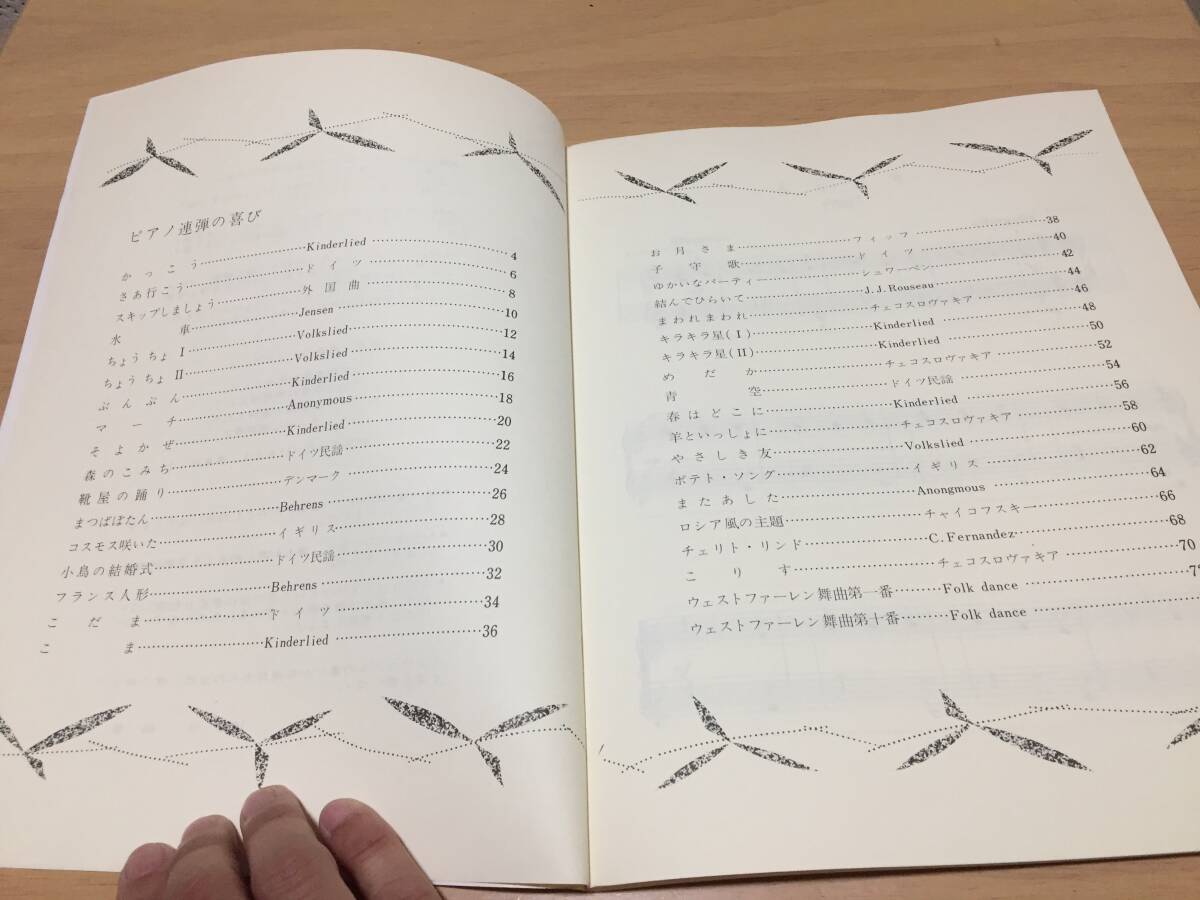 ピアノ連弾の喜び
かっこう……Kinderlied……4
さあ行こう……ドイツ……6
スキップしましょう……外国曲……8
水車……Jensen……10
ちょうちょ I……Volkslied……12
ちょうちょ II……Volkslied……14
ぶんぶん……Kinderlied……16
マーチ……Anonymous……18
そよかぜ……Kinderlied……20
森のこみち……ドイツ民謡……22
靴屋の踊り……デンマーク……24
まつばぼたん……Behrens……26
コスモス咲いた……イギリス……28
小鳥の結婚式……ドイツ民謡……30
フランス人形……Behrens……32
こだま……ドイツ……34
こま……Kinderlied……36
お月さま……フィッフ……38
子守歌……ドイツ……40
ゆかいなパーティー……シュワーベン……42
結んでひらいて……J.J.Rouseau……44
まわれまわれ……チェコスロヴァキア……46
キラキラ星(I)……Kinderlied……48
キラキラ星(II)……Kinderlied……50
めだか……チェコスロヴァキア……52
青空……ドイツ民謡……54
春はどこに……Kinderlied……56
羊といっしょに……チェコスロヴァキア……58
やさしき友……Volkslied……60
ポテト・ソング……イギリス……62
またあした……Anongmous……64
ロシア風の主題……チャイコフスキー……66
チェリト・リンド……C. Fernandez……68
こりす……チェコスロヴァキア……70
ウェストファーレン舞曲第一番……Folk dance……
ウェストファーレン舞曲第十番……Folk dance……